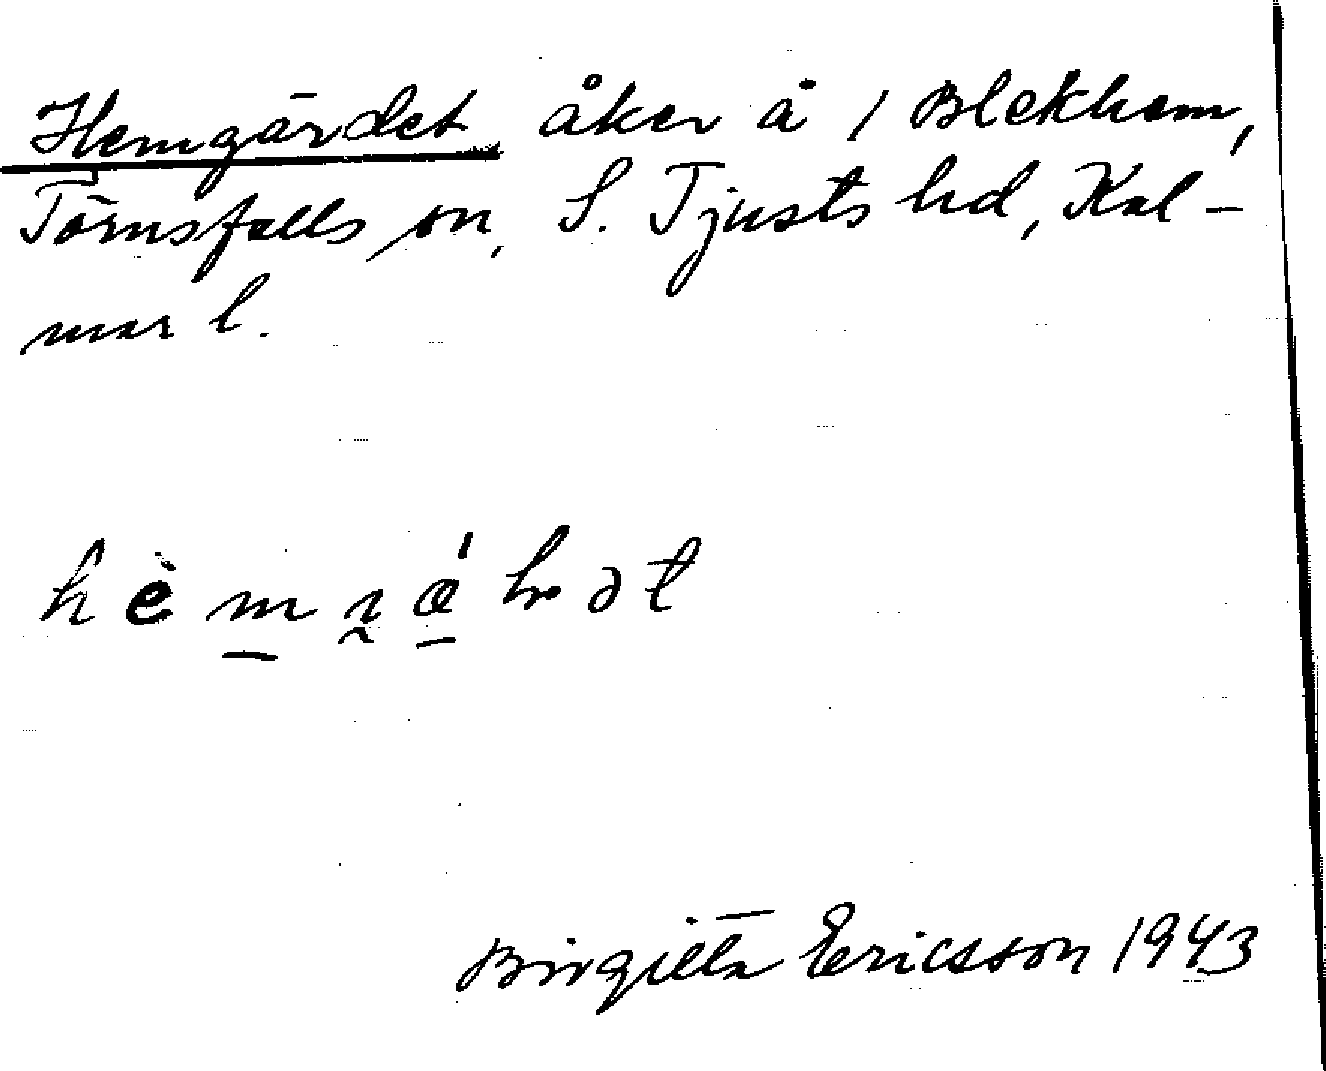 Hemgärdet, åker å 1 Blekhem,
Törnsfalls sn, S. Tjusts hd, Kal-
mar l.
Birgitta Ericsson 1943